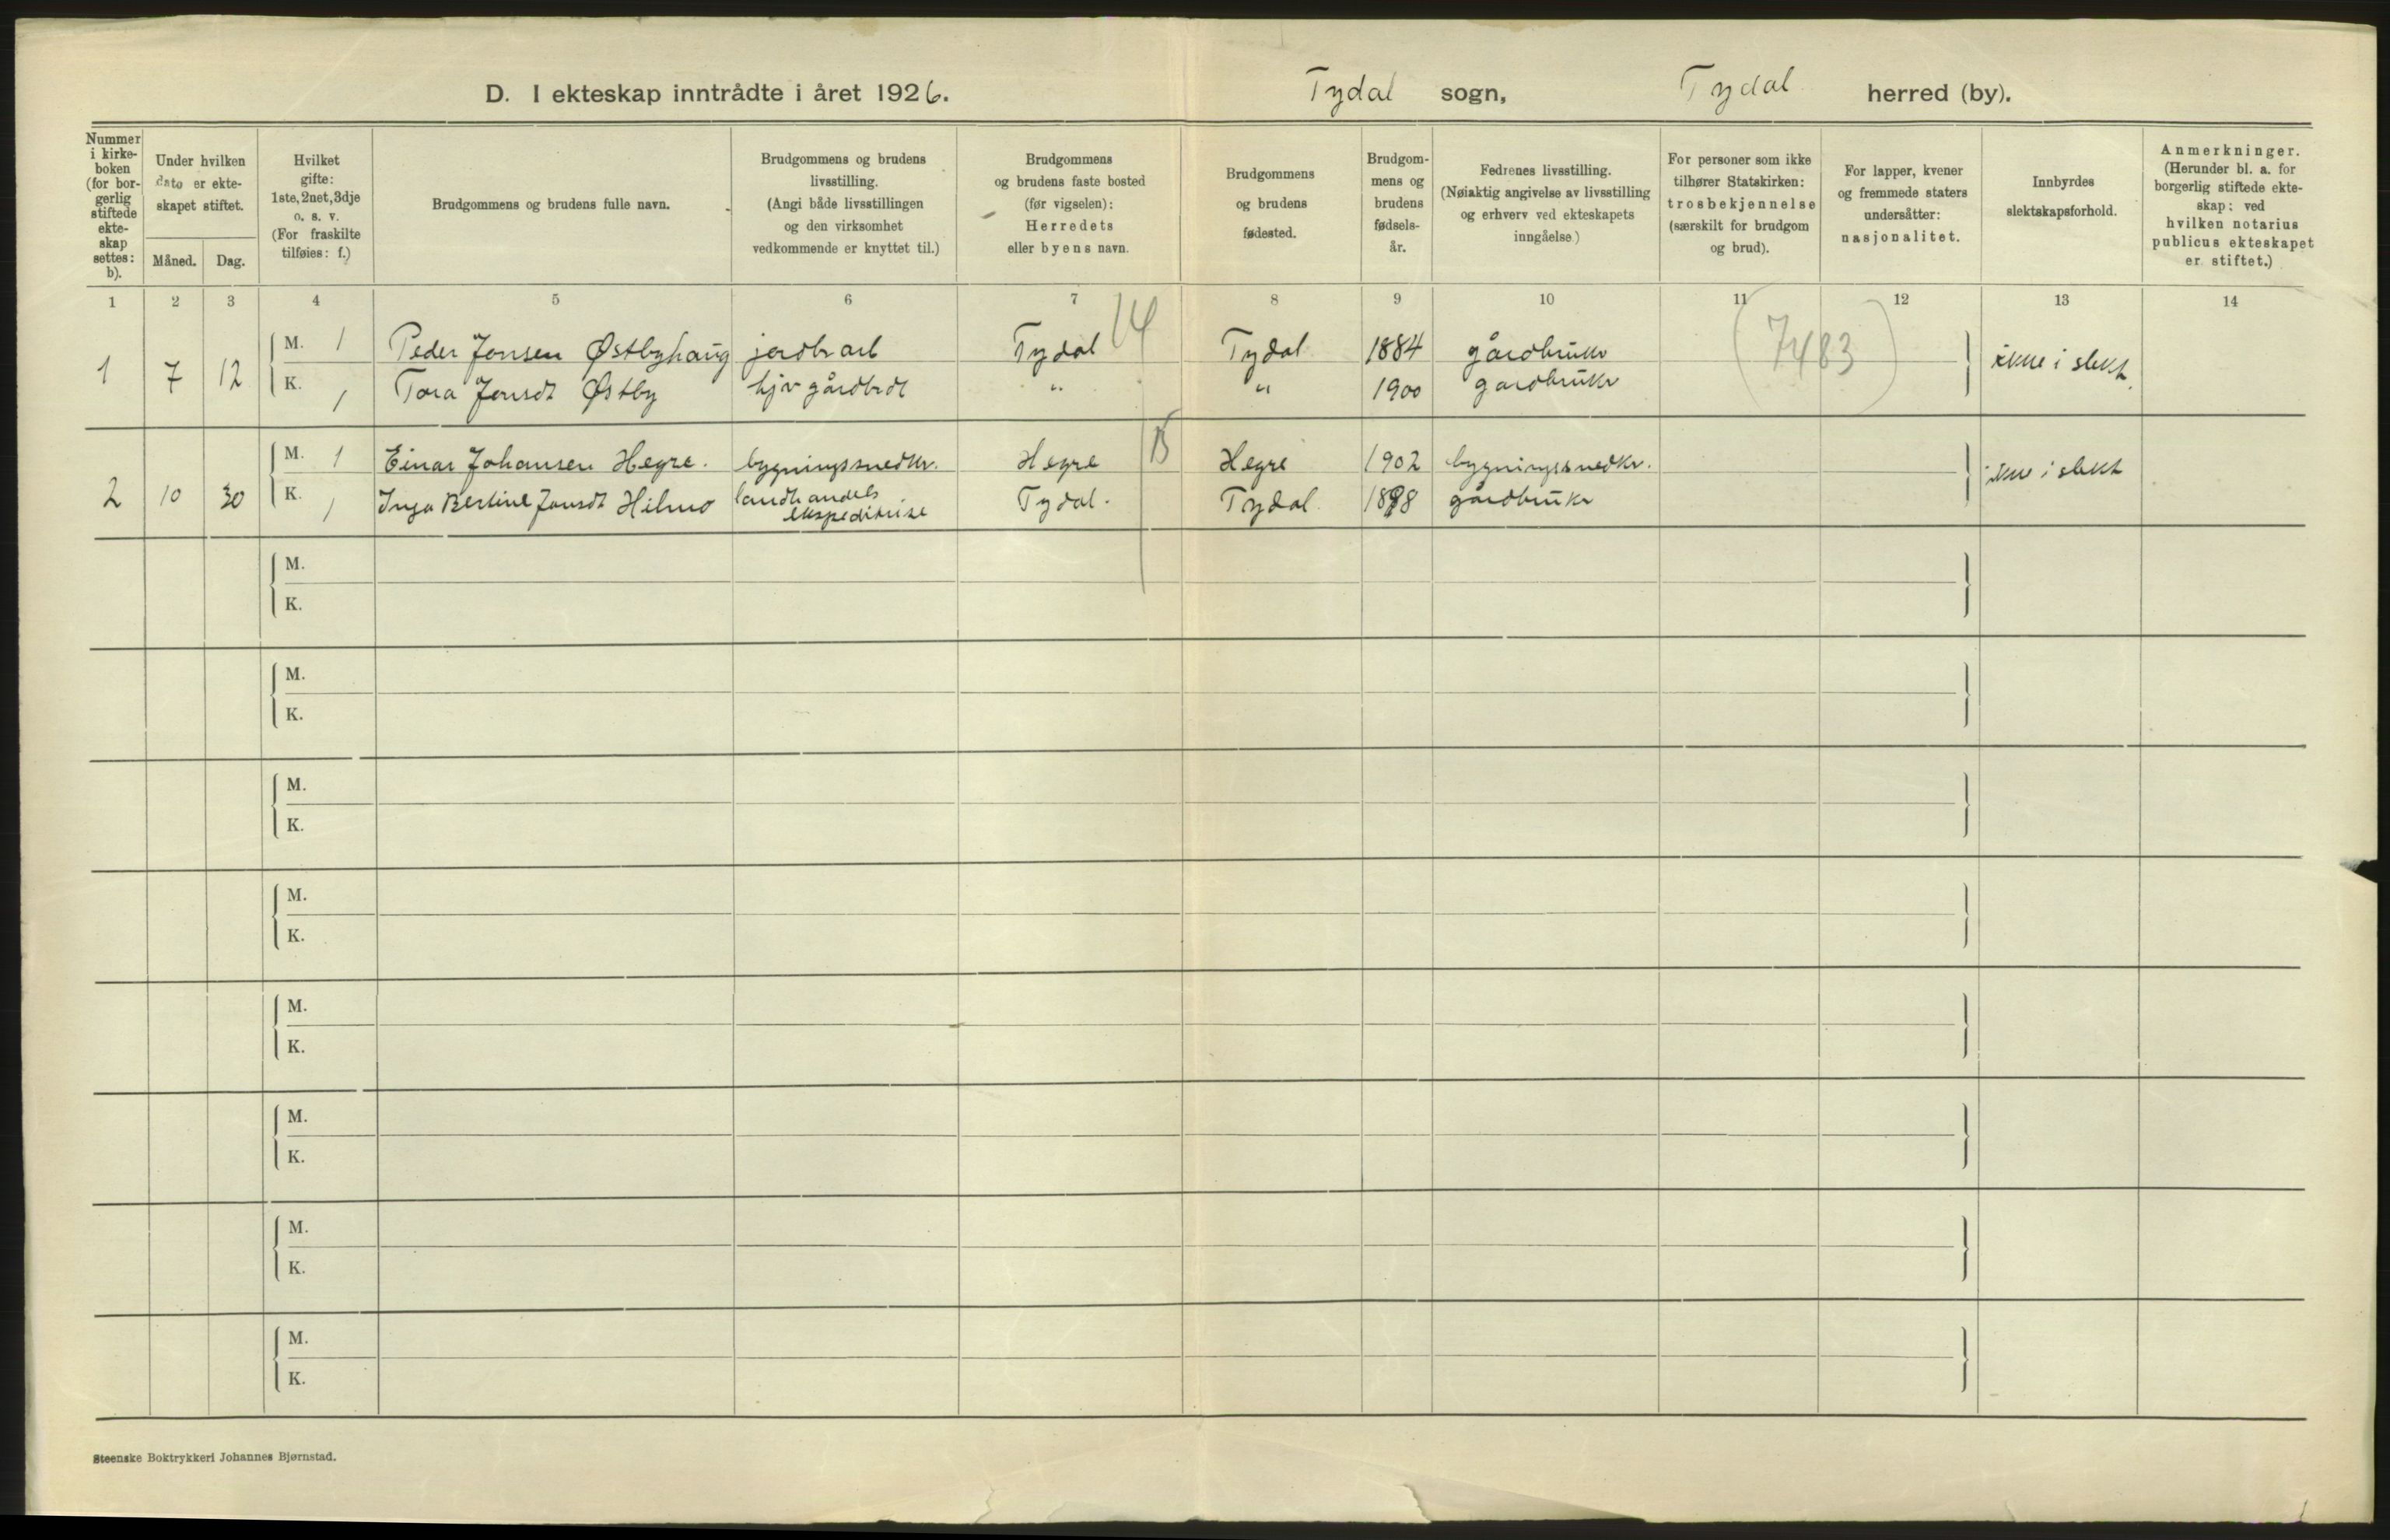 D. I ekteskap inntrådte i året 1926.
Tydal sogn, Tydal herred (by).
Nummer i kirke-boken (for bor-gerlig stiftede ekte-skap settes: b).
Under hvilken dato er ekte-skapet stiftet.
Måned. Dag.
Hvilket gifte: 1ste, 2net, 3dje o. s. v. (For fraskilte tilføies: f.)
Brudgommens og brudens fulle navn.
Brudgommens og brudens livsstilling. (Angi både livsstillingen og den virksomhet vedkommende er knyttet til.)
Brudgommens og brudens faste bosted (før vigselen): Herredets eller byens navn.
Brudgommens og brudens fødested.
Brudgom-mens og brudens fødsels-år.
Fedrenes livsstilling. (Nøiaktig angivelse av livsstilling og erhverv ved ekteskapets inngåelse)
For personer som ikke tilhører Statskirken: trosbekjennelse (særskilt for brudgom og brud).
For lapper, kvener og fremmede staters undersåtter: nasjonalitet.
Innbyrdes slektskapsforhold.
Anmerkninger. (Herunder bl. a. for borgerlig stiftede ekte-skap: ved hvilken notarius publicus ekteskapet er stiftet.)
1 2 3 4 5 6 7 8 9 10 11 12 13 14
1 7 12 M. 1 Peder Jonsen Østbyhaug jordbr arb Tydal 14 Tydal 1884 gårdbruker (7483) ikke i slekt.
K. 1 Tora Jonsdt Østby hjv gårdbrdt " " 1900 gardbruker
2 10 30 M. 1 Einar Johansen Hegre. bygningssnedkr. Hegre B Hegre 1902 bygningssnedkr. ikke i slekt
K. 1 Inga Bertine Jonsdt Hilmo landhandels ekspeditrise Tydal. Tydal. 1898 gårdbruker
M.
K.
M.
K.
M.
K.
M.
K.
M.
K.
M.
K.
M.
K.
M.
K.
Steenske Boktrykkeri Johannes Bjørnstad.